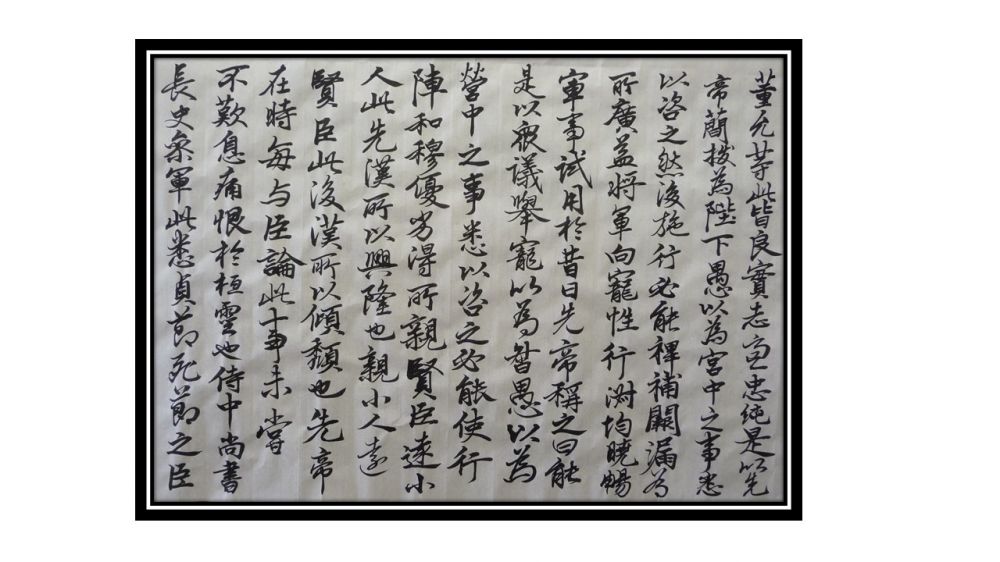 董允等此皆良實志慮忠純是以先
帝蕳拔為陛下愚以為宮中之事悉
以咨之然後施行必能裨補闕漏為
所廣益将軍向寵性行淑均曉暢
軍事試用於昔日先帝稱之曰能
是以眾議舉寵以為督愚以為
營中之事悉以咨之必能使行
陣和穆優劣得所親賢臣遠小
人此先漢所以興隆也親小人遠
賢臣此後漢所以傾頹也先帝
在時每与臣論此事未嘗
不歎息痛恨於桓靈也侍中尚書
長史參軍此悉貞節死節之臣